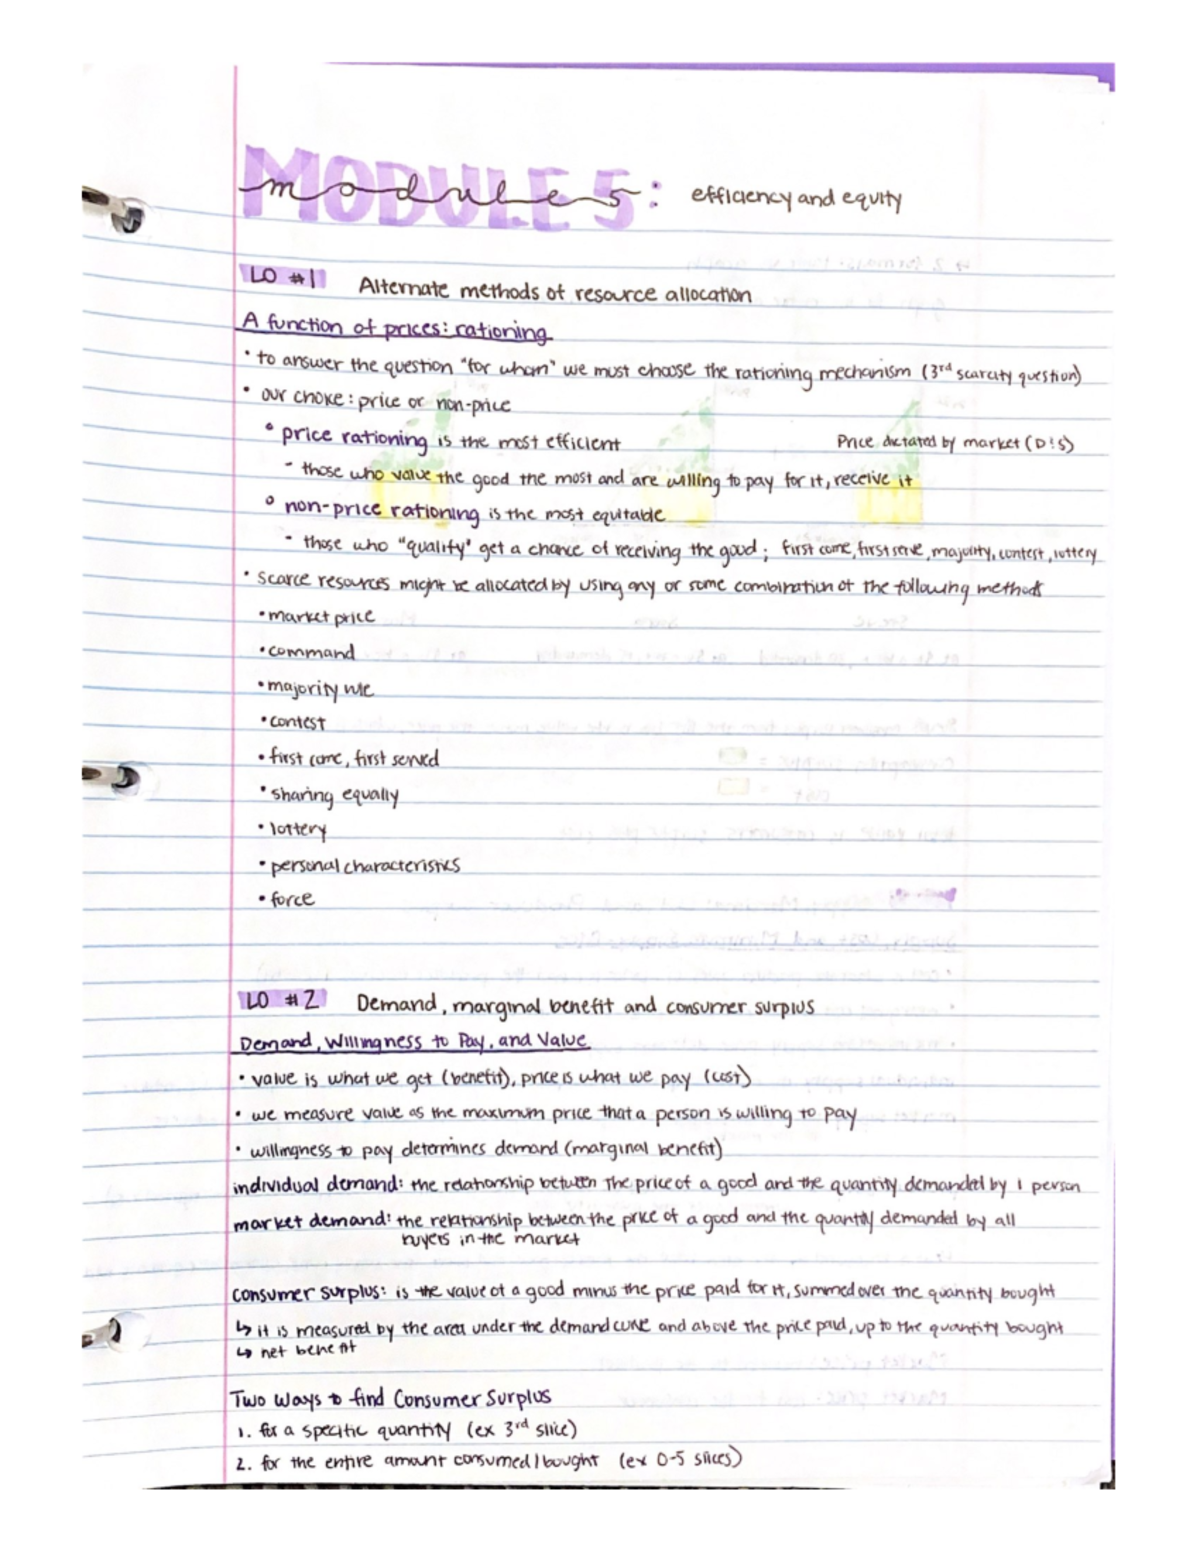 MODULE 5:
module 5
efficiency and equity
LO #1 Alternate methods of resource allocation
A function of prices: rationing
• to answer the question "for whom" we must choose the rationing mechanism (3rd scarcity question)
• our choice: price or non-price
° price rationing is the most efficient Price dictated by market (D!S)
- those who value the good the most and are willing to pay for it, receive it
° non-price rationing is the most equitable
- those who "qualify" get a chance of receiving the good; first come, first serve, majority, contest, lottery
• scarce resources might be allocated by using any or some combination of the following methods
• market price
• command
• majority rule
• contest
• first come, first served
• sharing equally
• lottery
• personal characteristics
• force
LO #2 Demand, marginal benefit and consumer surplus
Demand, Willingness to Pay, and Value
• value is what we get (benefit), price is what we pay (cost)
• we measure value as the maximum price that a person is willing to pay
• willingness to pay determines demand (marginal benefit)
individual demand: the relationship between the price of a good and the quantity demanded by 1 person
market demand: the relationship between the price of a good and the quantity demanded by all
buyers in the market
consumer surplus: is the value of a good minus the price paid for it, summed over the quantity bought
↳ it is measured by the area under the demand curve and above the price paid, up to the quantity bought
↳ net benefit
Two Ways to find Consumer Surplus
1. for a specific quantity (ex 3rd slice)
2. for the entire amount consumed/bought (ex 0-5 slices)